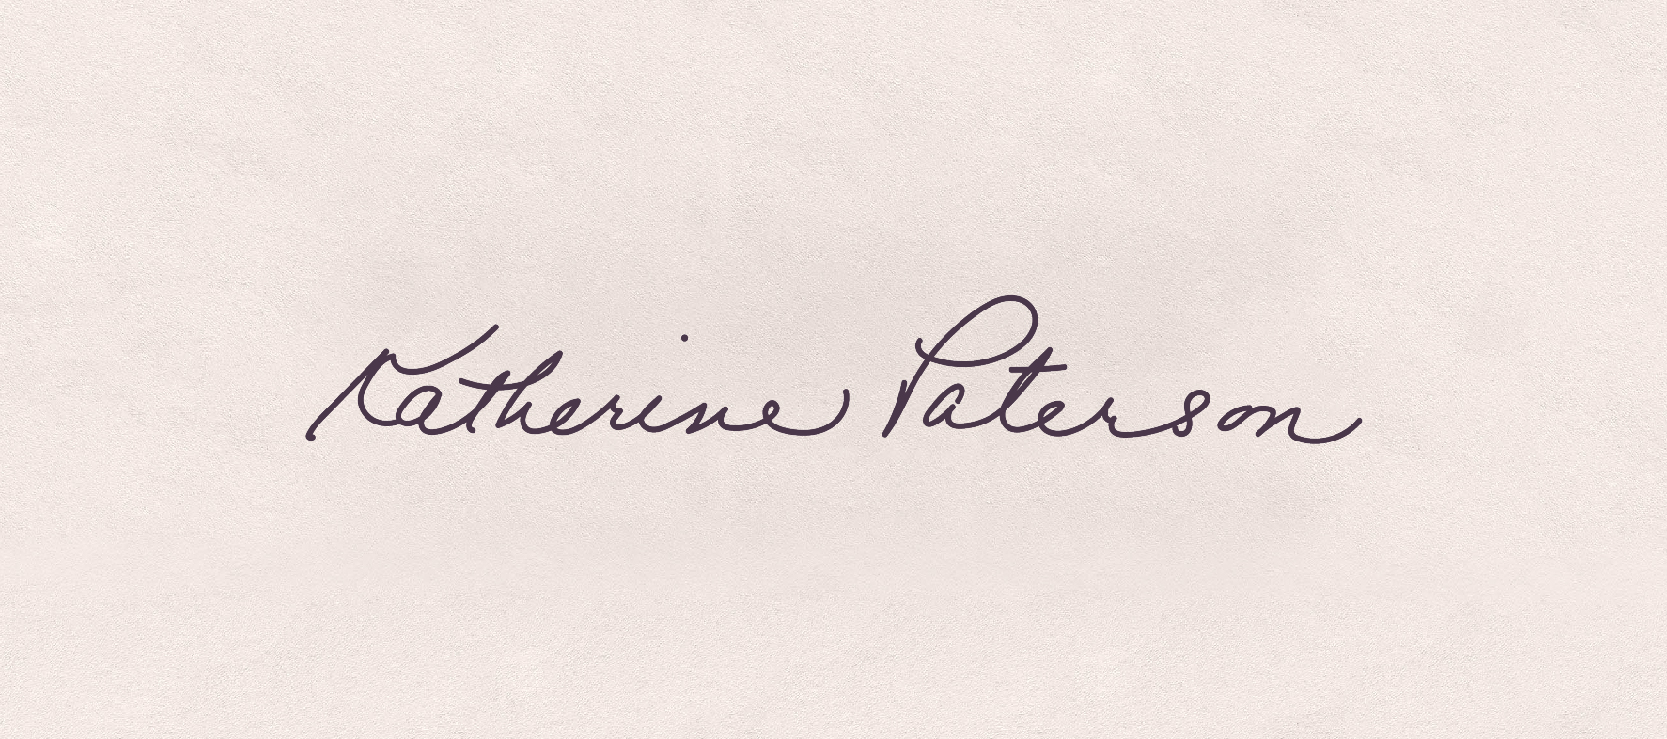 Katherine Paterson